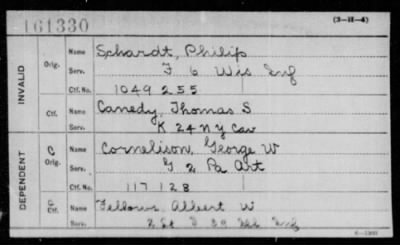 161330
(3-H-4)
INVALID
Orig.
Name Sphardt, Philip
Serv. F 6 Wis Inf
Ctf. No. 1049255
Ctf.
Name Canedy, Thomas S
Serv. K 24 N Y Cav
DEPENDENT
C
Orig.
Name Cornelison, George W
Serv. G 2 Pa Art
Ctf. No. 117128
C
Ctf.
Name Fellows, Albert W
Serv. 2 Lt D 39 Inf